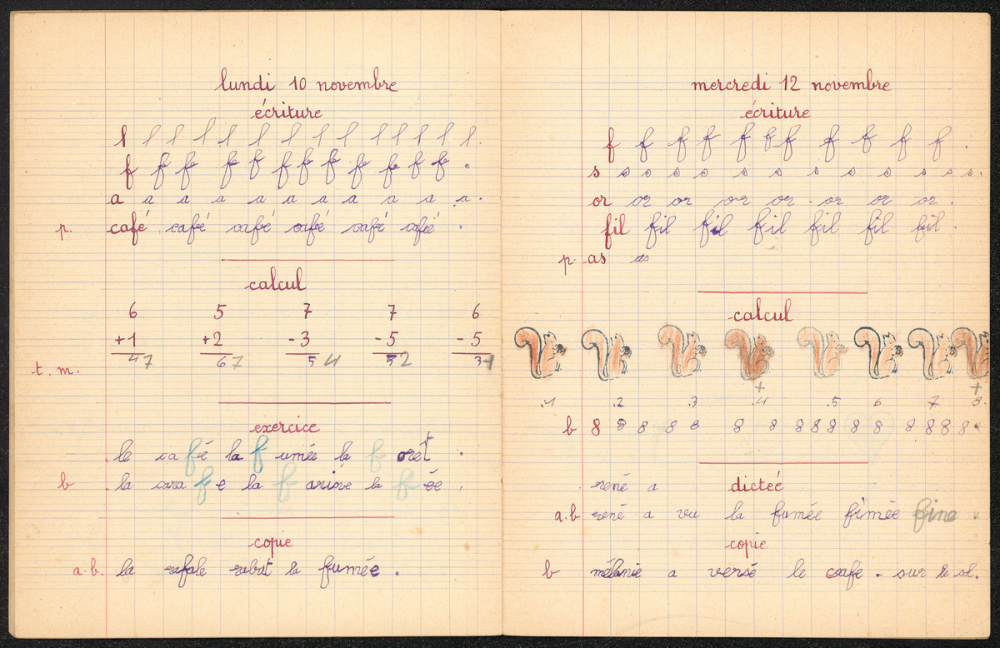 lundi 10 novembre
écriture
l l l l l l l l l l l l l.
f f f f f f f f f f f f.
a a a a a a a a a a a.
p. café café café café café café
calcul
6 5 7 7 6
+1 +2 -3 -5 -5
47 67 54 52 31
t. m.
exercice
le café la fumée la forêt.
b la carafe la farine la fée.
copie
a.b. la rafale rabat la fumée.
mercredi 12 novembre
écriture
f f f f f f f f f f f f.
s s s s s s s s s s s s s.
or or or or or or or or.
fil fil fil fil fil fil fil.
p. as as
calcul
+ +
1 2 3 4 5 6 7 8.
b 8 8 8 8 8 8 8 8 8 8 8 8 8 8 8 8 8
rené a dictée
a.b rené a vu la fumée fimée fine
copie
b mélanie a versé le café. sur le sol.